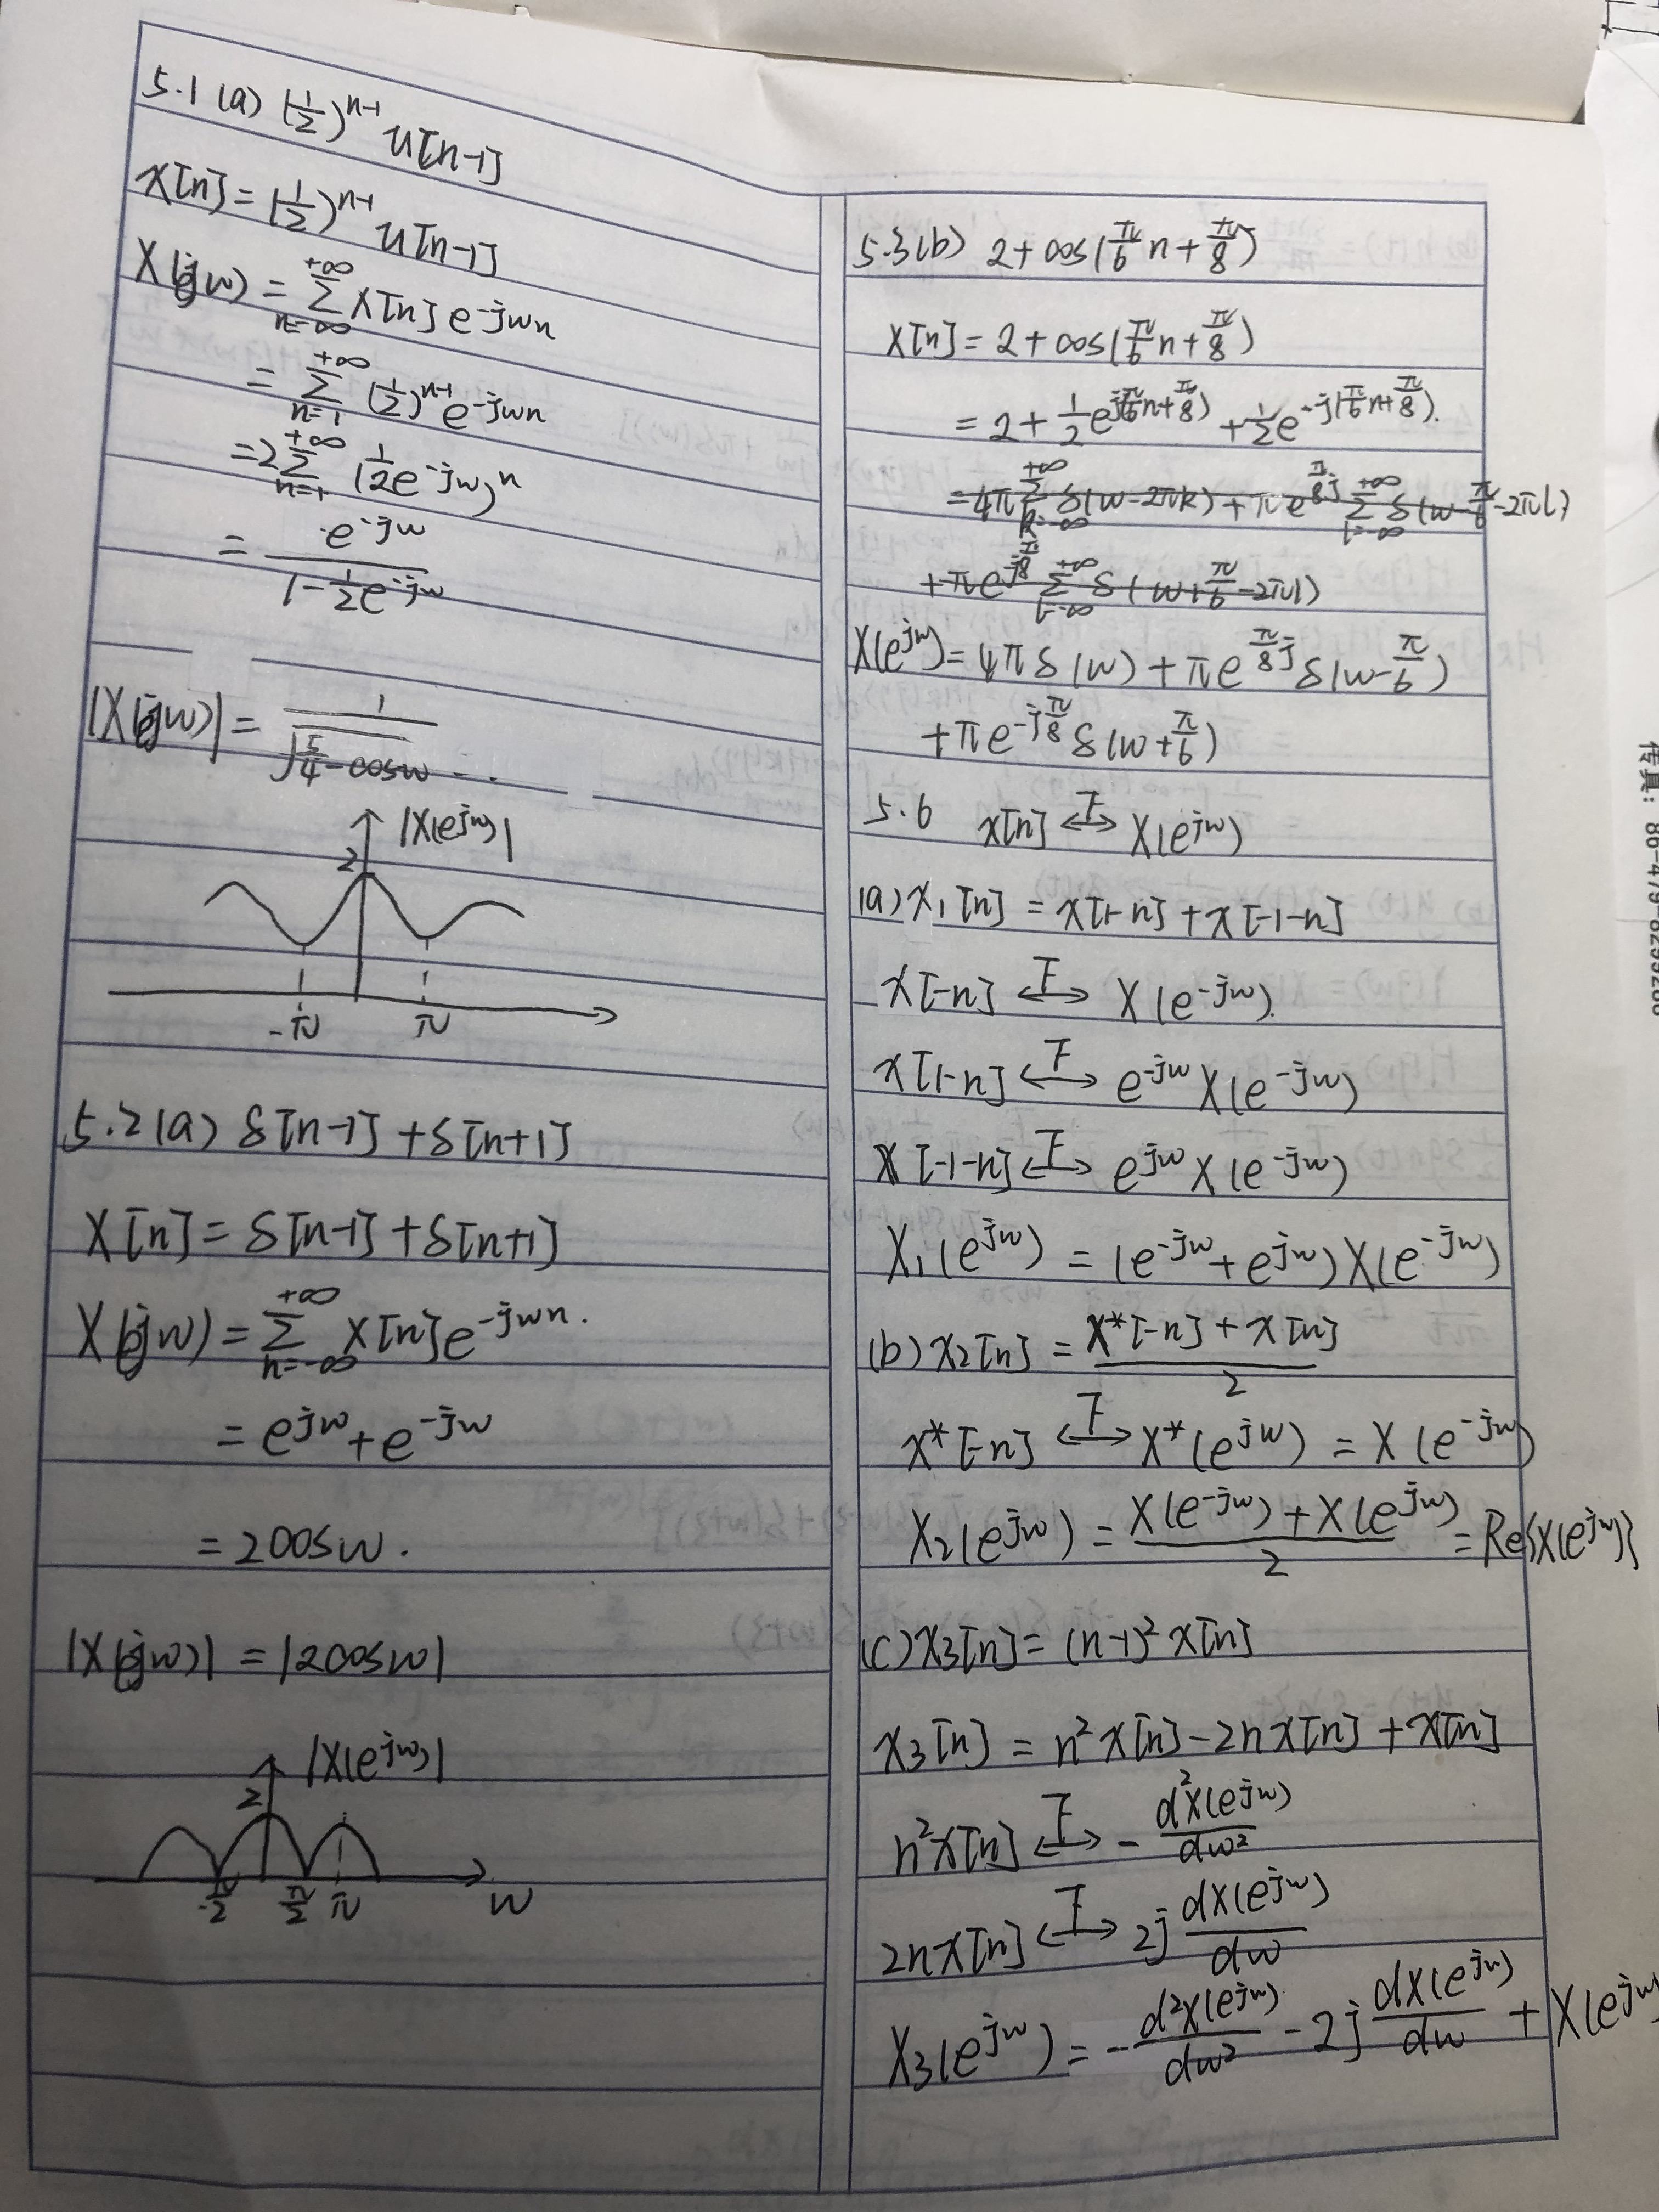 5.1 (a) (1/2)^{n-1} u[n-1]
x[n] = (1/2)^{n-1} u[n-1]
X(jw) = Σ_{n=-∞}^{+∞} x[n] e^{-jwn}
= Σ_{n=1}^{+∞} (1/2)^{n-1} e^{-jwn}
= 2 Σ_{n=1}^{+∞} (1/2 e^{-jw})^n
= e^{-jw} / (1 - 1/2 e^{-jw})
|X(jw)| = 1 / √(5/4 - cosw)
|X(e^{jw})|
2
-π π
5.2 (a) δ[n-1] + δ[n+1]
x[n] = δ[n-1] + δ[n+1]
X(jw) = Σ_{n=-∞}^{+∞} x[n] e^{-jwn}.
= e^{jw} + e^{-jw}
= 2cosw.
|X(jw)| = |2cosw|
|X(e^{jw})|
2
-π/2 π/2 π w
5.3 (b) 2 + cos(π/6 n + π/8)
x[n] = 2 + cos(π/6 n + π/8)
= 2 + 1/2 e^{j(π/6 n + π/8)} + 1/2 e^{-j(π/6 n + π/8)}.
= 4π Σ_{k=-∞}^{+∞} δ(w-2πk) + π e^{π/8 j} Σ_{l=-∞}^{+∞} δ(w - π/6 - 2πl)
+ π e^{j π/8} Σ_{l=-∞}^{+∞} δ(w + π/6 - 2πl)
X(e^{jw}) = 4πδ(w) + π e^{π/8 j} δ(w - π/6)
+ π e^{-j π/8} δ(w + π/6)
5.6 x[n] ↔F X(e^{jw})
(a) x1[n] = x[1-n] + x[-1-n]
x[-n] ↔F X(e^{-jw}).
x[1-n] ↔F e^{-jw} X(e^{-jw})
x[-1-n] ↔F e^{jw} X(e^{-jw})
X1(e^{jw}) = (e^{-jw} + e^{jw}) X(e^{-jw})
(b) x2[n] = (x*[-n] + x[n]) / 2
x*[-n] ↔F X*(e^{jw}) = X(e^{-jw})
X2(e^{jw}) = (X(e^{-jw}) + X(e^{jw})) / 2 = Re{X(e^{jw})}
(c) x3[n] = (n-1)² x[n]
x3[n] = n² x[n] - 2n x[n] + x[n]
n² x[n] ↔F - d²X(e^{jw}) / dw²
2n x[n] ↔F 2j dX(e^{jw}) / dw
X3(e^{jw}) = - d²X(e^{jw}) / dw² - 2j dX(e^{jw}) / dw + X(e^{jw}
传真: 86-479-8299288